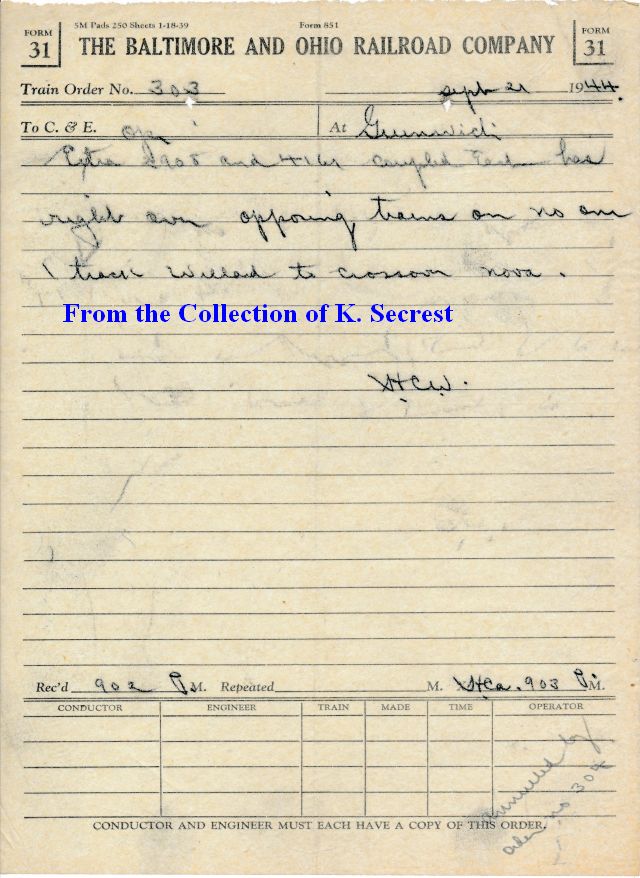 5M Pads 250 Sheets 1-18-39 Form 851
FORM 31
THE BALTIMORE AND OHIO RAILROAD COMPANY
FORM 31
Train Order No. 303 Sept 21 1944.
To C. & E. Opr At Greenwich
Extra and 4161 coupled East has
right over opposing trains on no one
1 track Willard to crossover nova.
From the Collection of K. Secrest
HCW.
Rec'd 902 P M. Repeated M. 903 P M.
CONDUCTOR ENGINEER TRAIN MADE TIME OPERATOR
annulled by
order no 304
CONDUCTOR AND ENGINEER MUST EACH HAVE A COPY OF THIS ORDER.